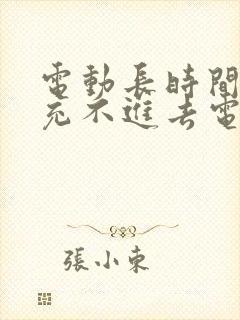 電動長時間
充不進去電
張小東